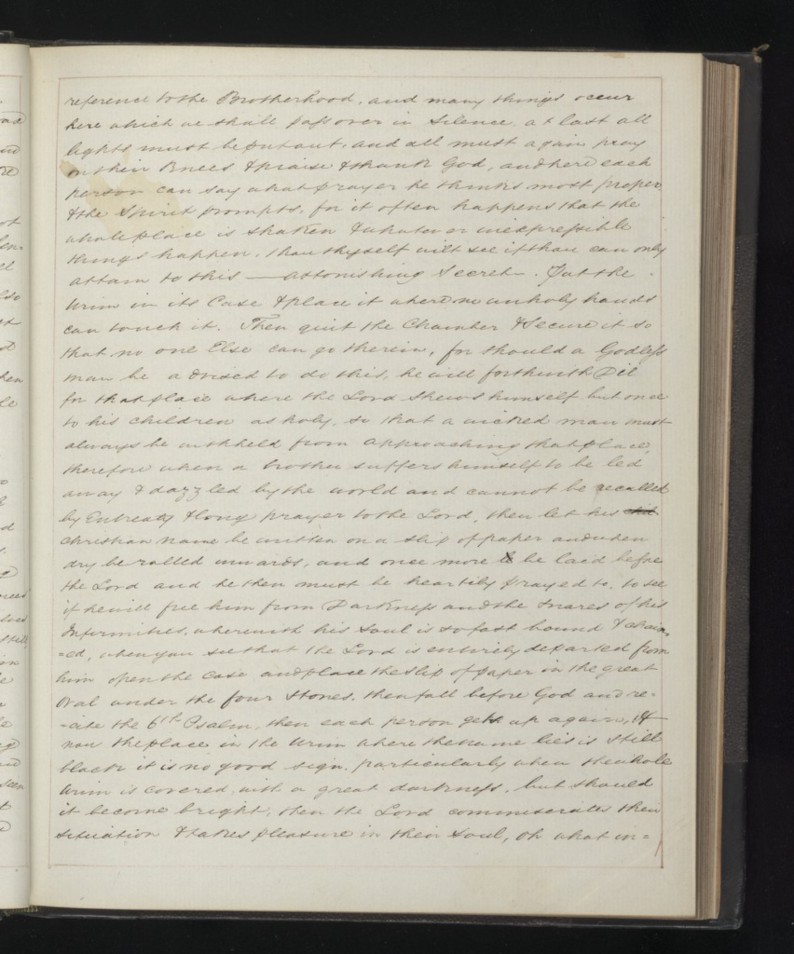 reference to the Brotherhood, and many things occur
here which we shall pass over in Silence, at last all
lights must be put out, and all must again pray
on their Knees & praise & thank God, and here each
person can say what prayer he thinks most proper
& the Spirit prompts, for it often happens that the
whole place is shaken & whatever inexpressible
things happen. thou thyself wilt see if thou can only
attain to this — astonishing Secret —. Put the
Urim in its Case & place it where no unholy hands
can touch it. Then quit the Chamber & Secure it so
that no one Else can go therein, for should a Godless
man be advised to do this, he will forthwith Die
for that place where the Lord shews himself but once
to his children is holy, so that a wicked man must
always be withheld from approaching that place,
therefore when a brother suffers himself to be led
away & dazzled by the world and cannot be recalled
by Entreaty & long prayer to the Lord, then let his
Christian name be written on a slip of paper and when
dry be rolled inwards, and once more be laid before
the Lord and he then must be heartily prayed to, to see
if he will free him from Darkness and the snares of his
Infirmities, wherewith his Soul is so fast bound & chain-
=ed, when you see that the Lord is entirely departed from
him open the case and place the slip of paper in the great
Oval under the four Stones. then fall before God and re-
-cite the 6th Psalm, then each person gets up again, If
now the place in the Urim where the name lies is still
black it is no good sign, particularly when the whole
Urim is covered with a great darkness, but should
it become bright, then the Lord commiserates their
situation & takes pleasure in their Soul, Oh what in=